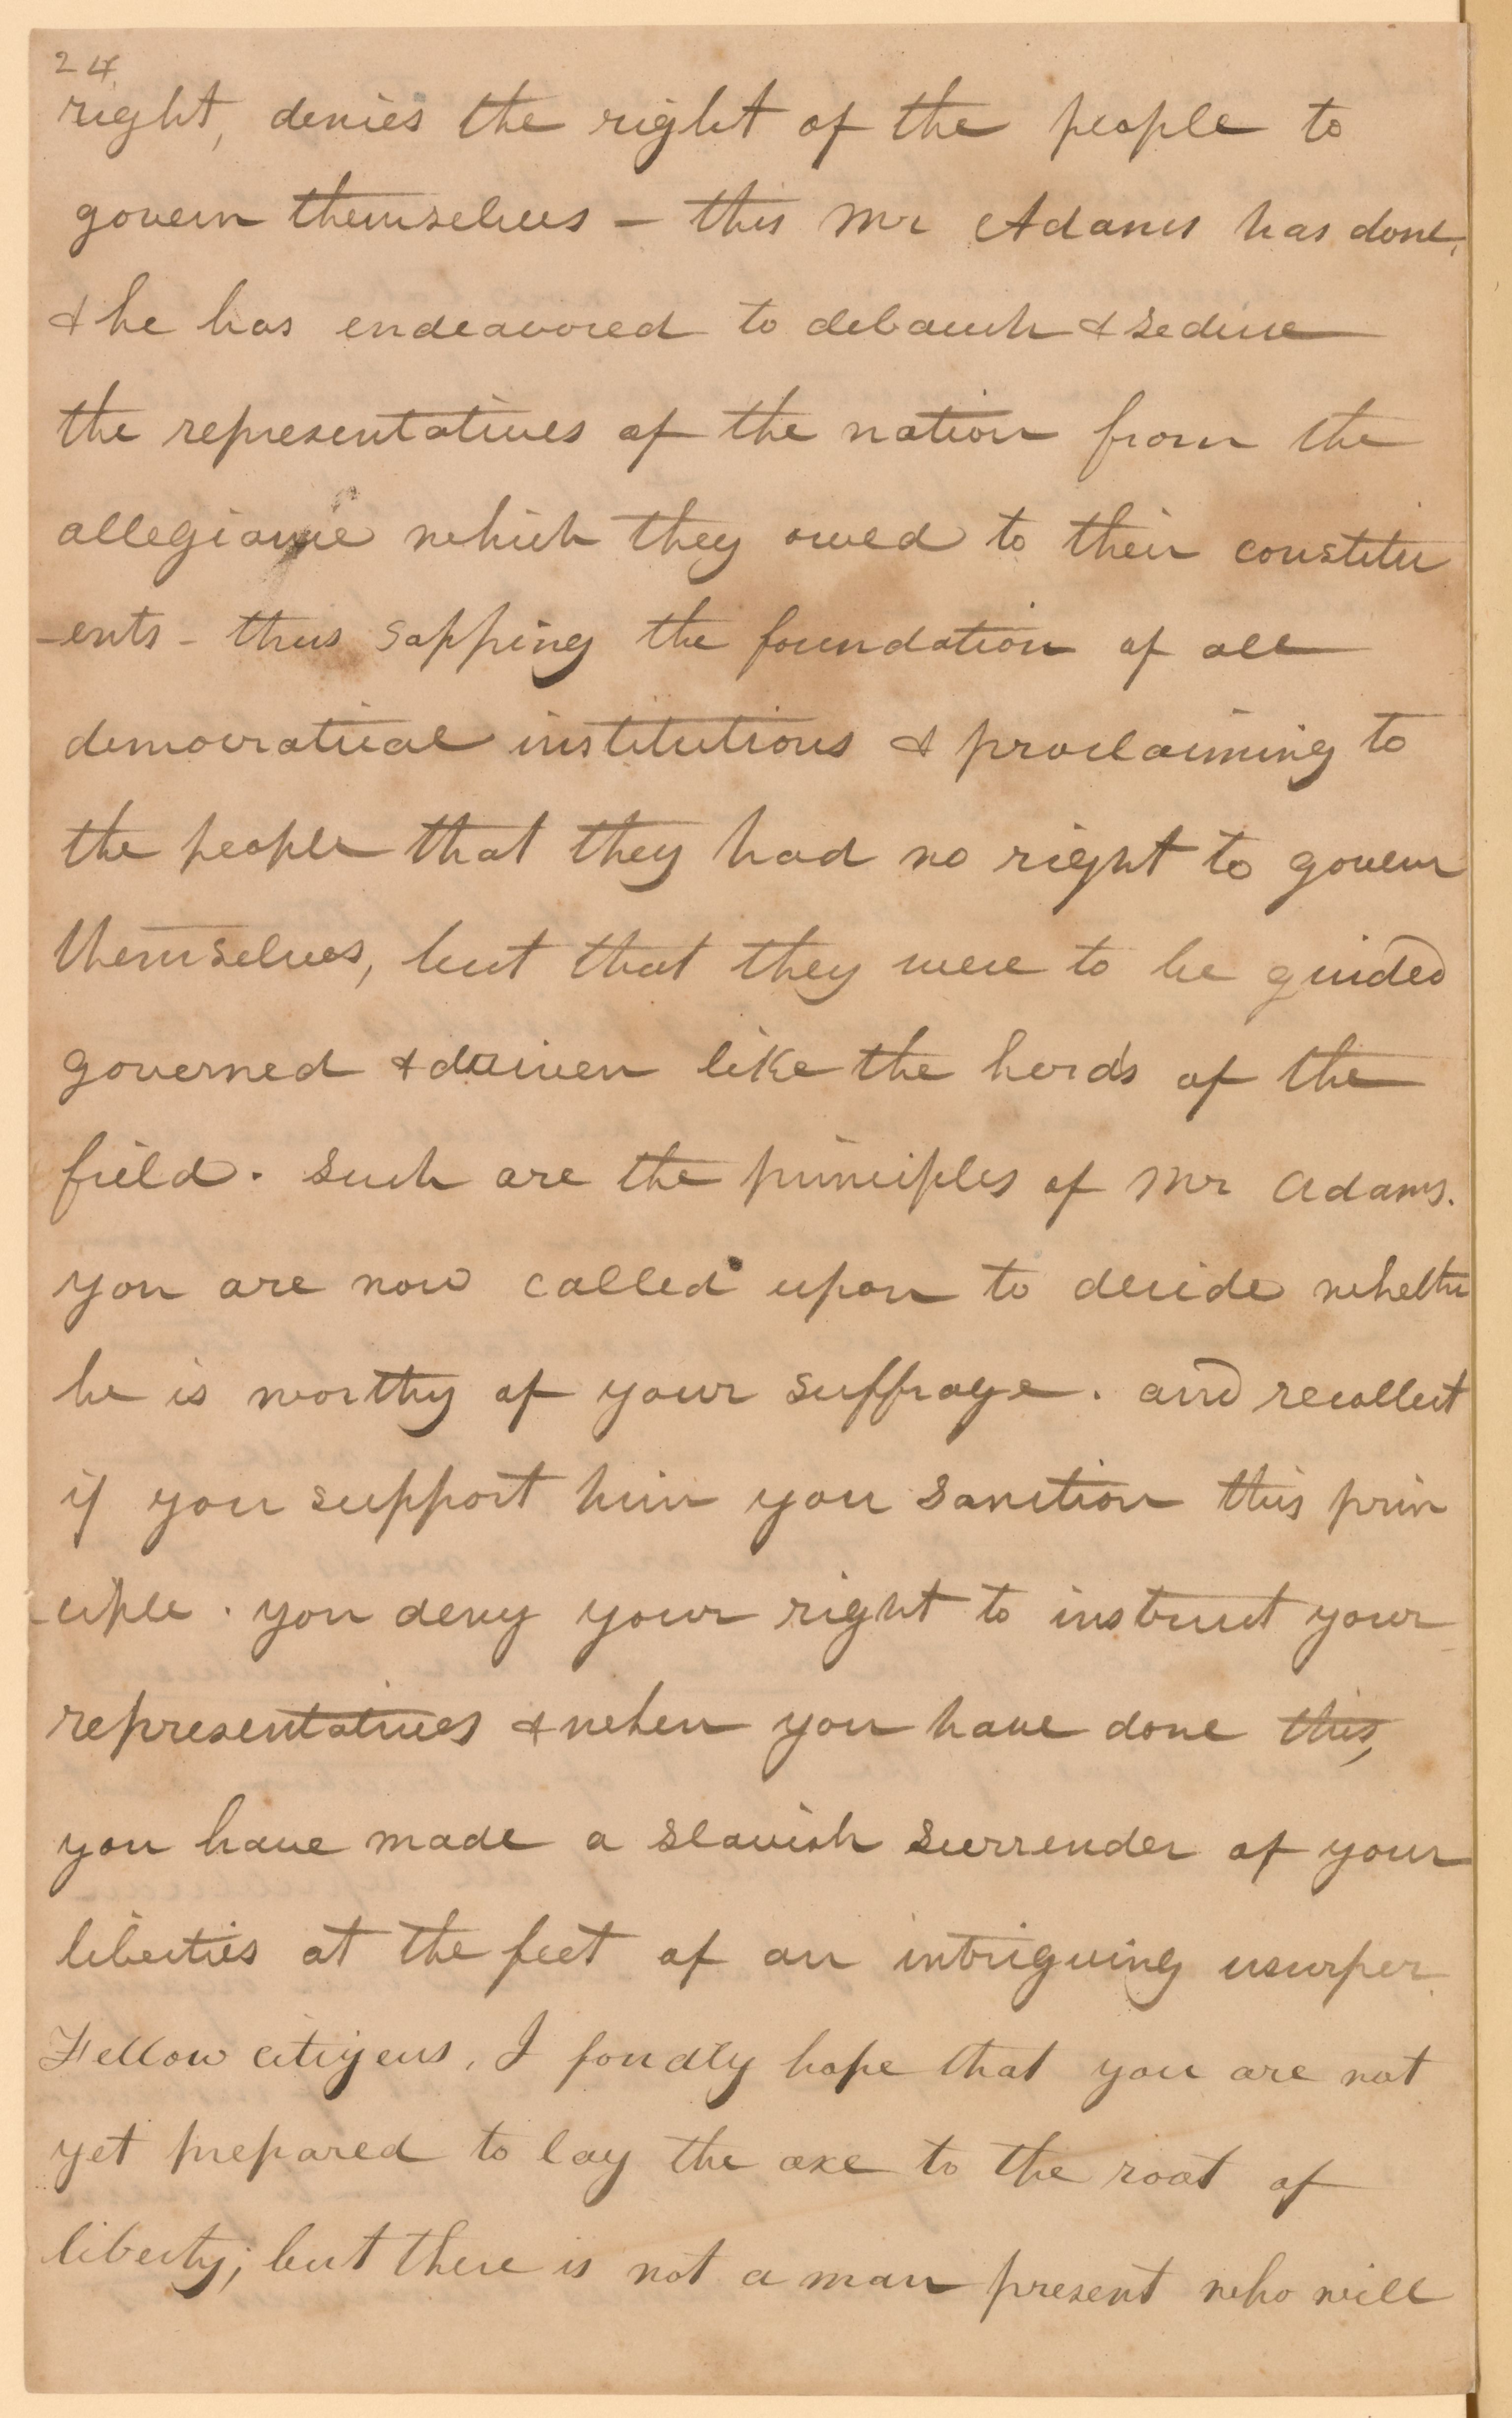 24
right, denies the right of the people to
govern themselves – this Mr Adams has done,
& he has endeavored to debauch & seduce
the representatives of the nation from the
allegiance which they owed to their constitu
-ents – thus sapping the foundation of all
democratical institutions & proclaiming to
the people that they had no right to govern
themselves, but that they were to be guided
governed & driven like the herds of the
field. Such are the principles of Mr Adams.
you are now called upon to decide whether
he is worthy of your suffrage. and recollect
if you support him you sanction this prin
-ciple. you deny your right to instruct your
representatives & when you have done this,
you have made a slavish surrender of your
liberties at the feet of an intriguing usurper.
Fellow citizens, I fondly hope that you are not
yet prepared to lay the axe to the root of
liberty; but there is not a man present who will